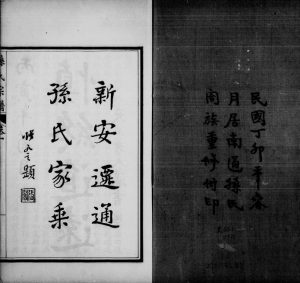 民國丁卯年冬
月居南區孫氏
闔族重修付印
新安遷通
孫氏家乘
題
氏宗譜